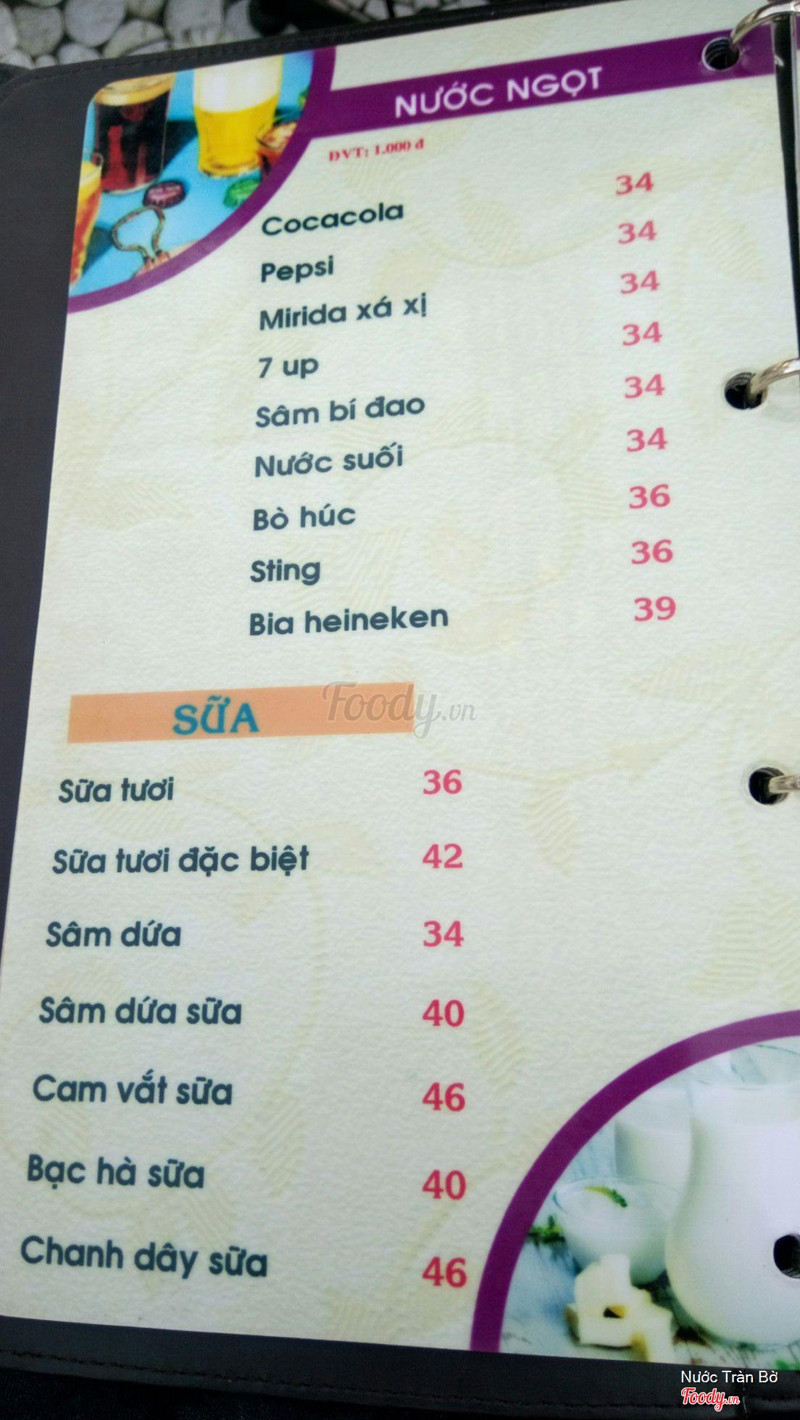 NƯỚC NGỌT
ĐVT: 1.000 đ
Cocacola 34
Pepsi 34
Mirida xá xị 34
7 up 34
Sâm bí đao 34
Nước suối 34
Bò húc 36
Sting 36
Bia heineken 39
SỮA
Foody.vn
Sữa tươi 36
Sữa tươi đặc biệt 42
Sâm dứa 34
Sâm dứa sữa 40
Cam vắt sữa 46
Bạc hà sữa 40
Chanh dây sữa 46
Nước Tràn Bờ
Foody.vn